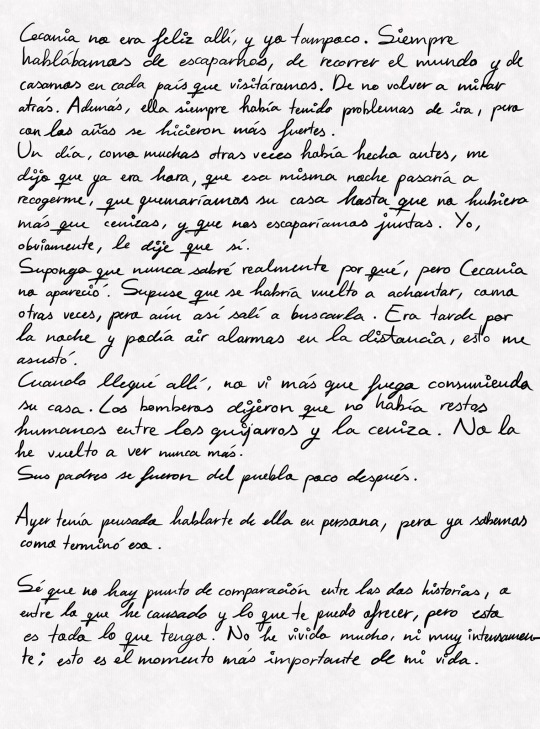 Cecania no era feliz allí, y yo tampoco. Siempre
hablábamos de escaparnos, de recorrer el mundo y de
casarnos en cada país que visitáramos. De no volver a mirar
atrás. Además, ella siempre había tenido problemas de ira, pero
con los años se hicieron más fuertes.
Un día, como muchas otras veces había hecho antes, me
dijo que ya era hora, que esa misma noche pasaría a
recogerme, que quemaríamos su casa hasta que no hubiera
más que cenizas, y que nos escaparíamos juntas. Yo,
obviamente, le dije que sí.
Supongo que nunca sabré realmente por qué, pero Cecania
no apareció. Supuse que se habría vuelto a achantar, como
otras veces, pero aún así salí a buscarla. Era tarde por
la noche y podía oír alarmas en la distancia, esto me
asustó.
Cuando llegué allí, no vi más que fuego consumiendo
su casa. Los bomberos dijeron que no había restos
humanos entre los guijarros y la ceniza. No la
he vuelto a ver nunca más.
Sus padres se fueron del pueblo poco después.
Ayer tenía pensado hablarte de ella en persona, pero ya sabemos
como terminó eso.
Sé que no hay punto de comparación entre las dos historias, o
entre lo que he causado y lo que te puedo ofrecer, pero esto
es todo lo que tengo. No he vivido mucho, ni muy intensamen-
te; esto es el momento más importante de mi vida.